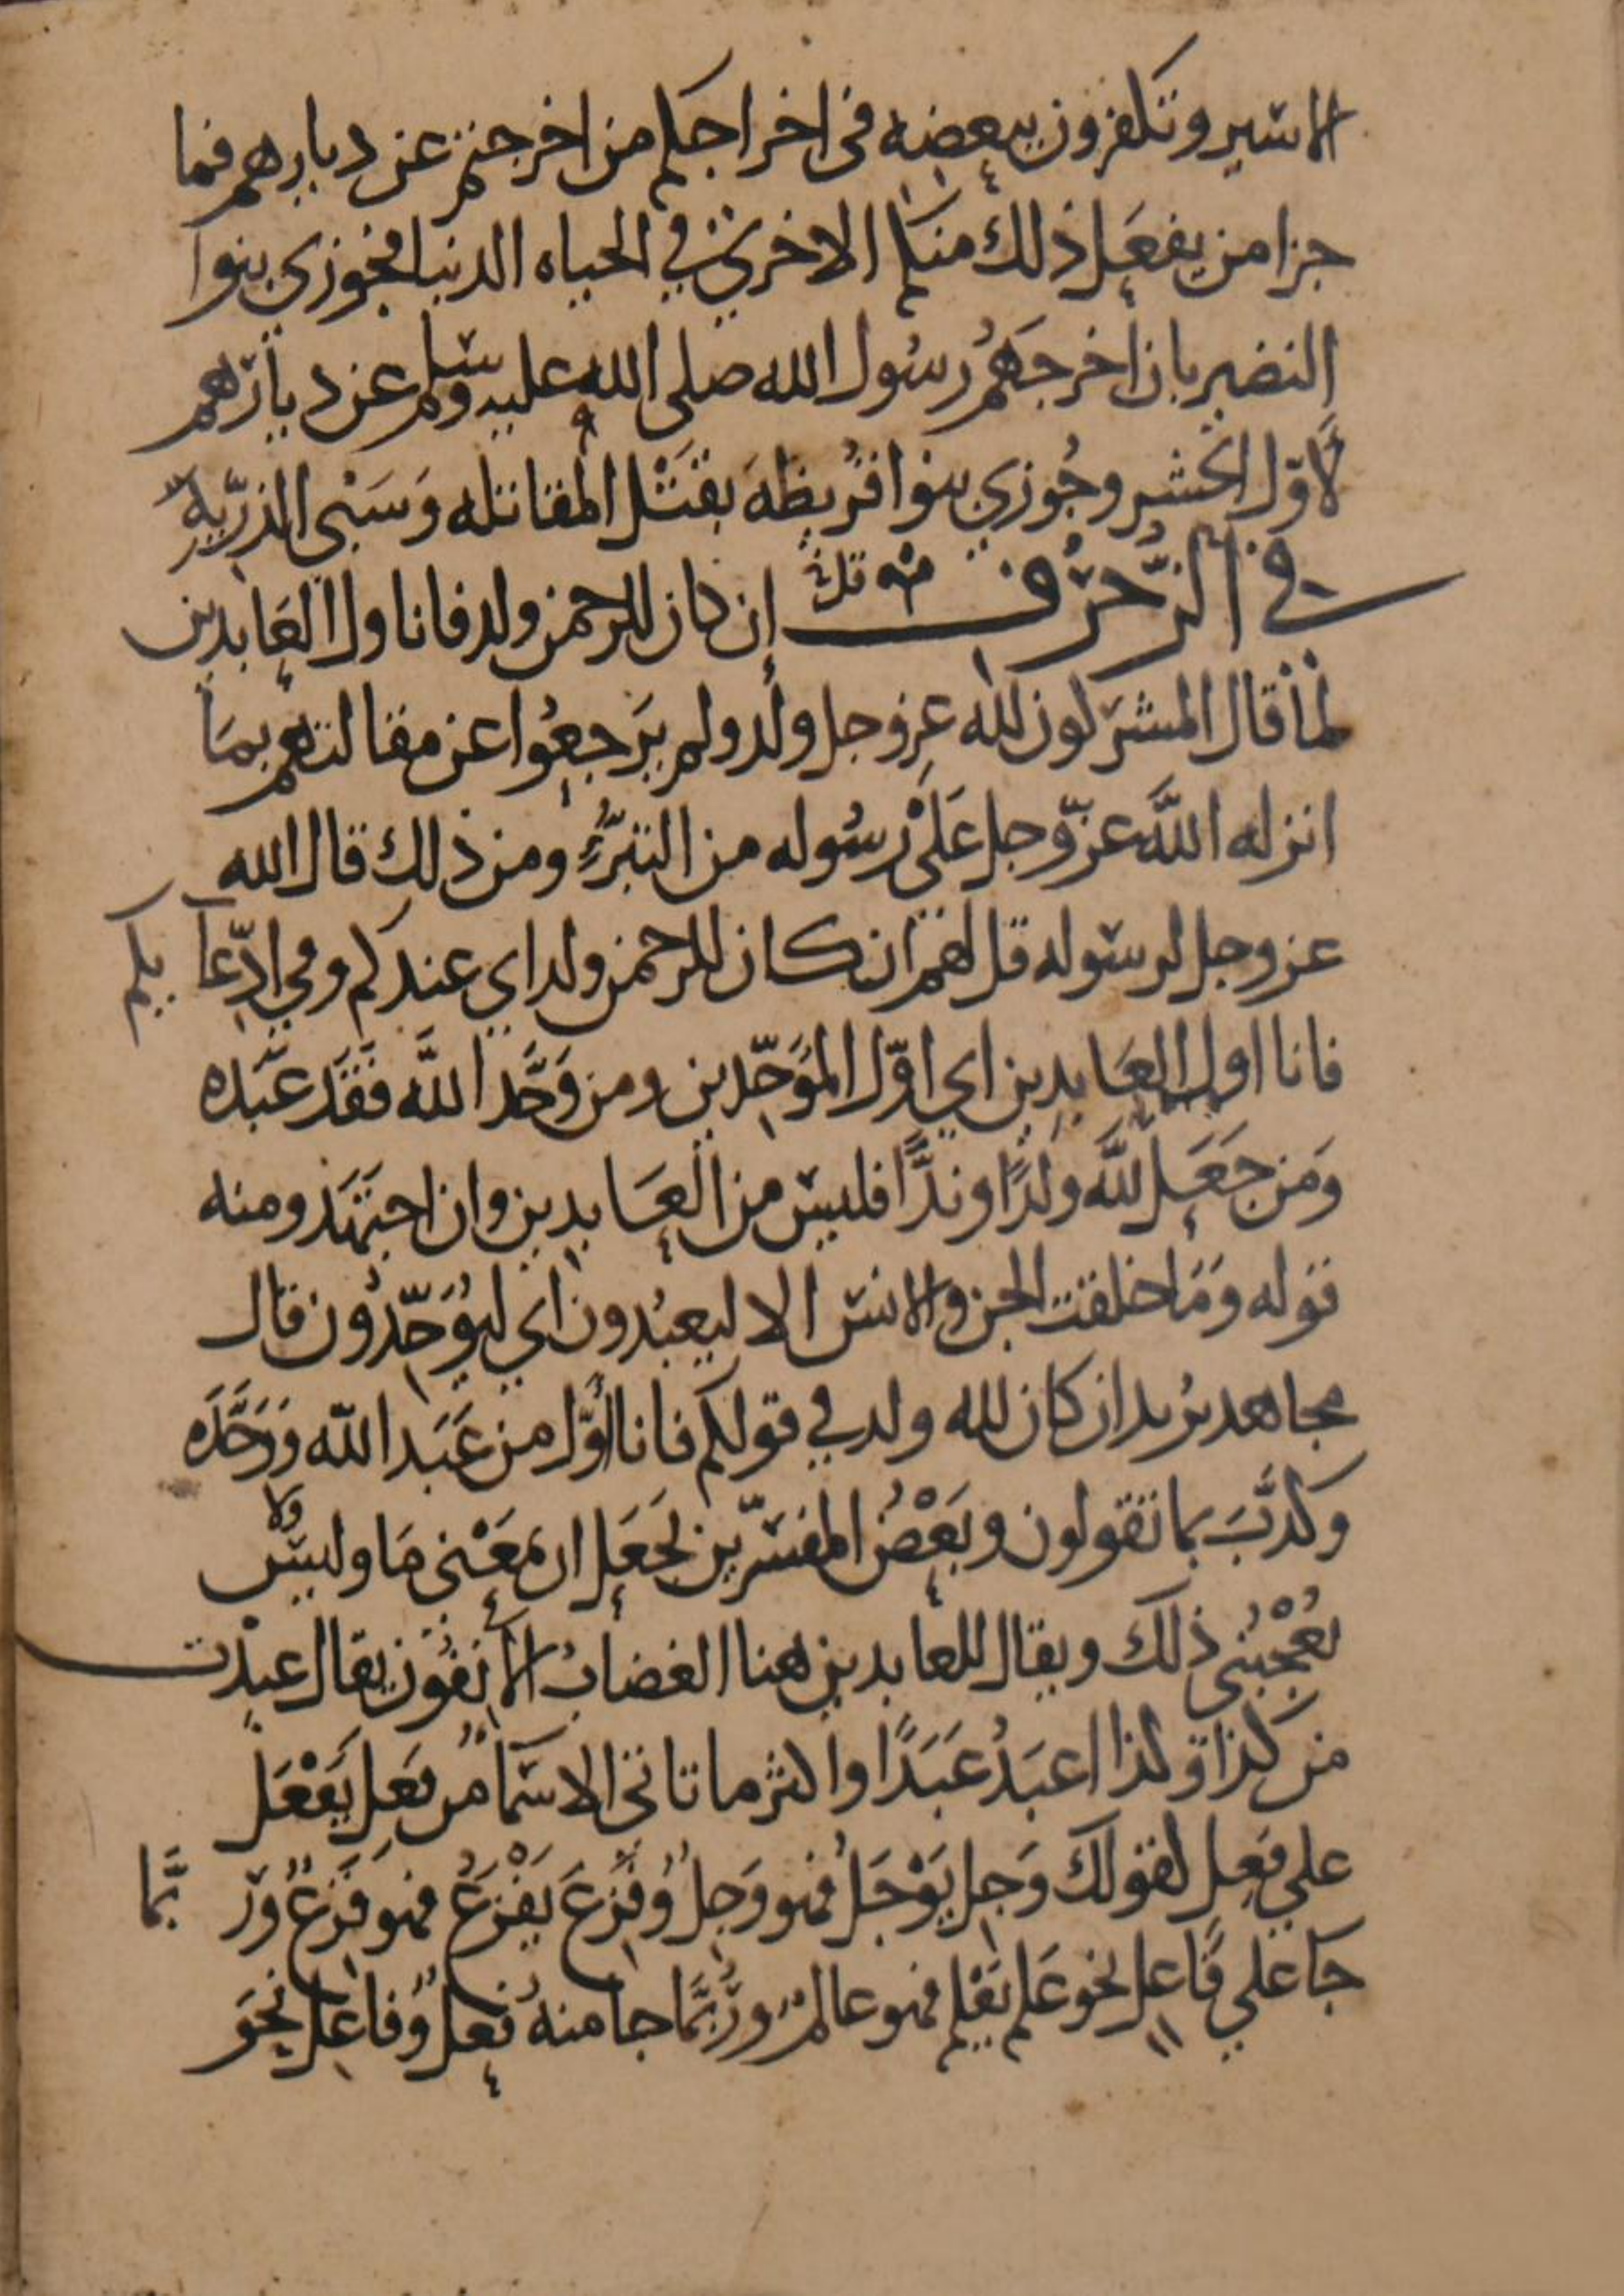 الاسير وتكفرون ببعضه فى اخراجكم من اخرجتم عن ديارهم فما
جزا من يفعل ذلك منكم الاخزي في الحياه الدنيا فجوزى بنوا
النضير بان اخرجهم رسول الله صلى الله عليه وسلم عن ديارهم
لاوّل الحشر وجُوزي بنوا قُريظهَ بقَتْل المقاتله وَسَبْى الذرّيه
في الزُّخرُف إن كان للرحمن ولد فانا اول العابدين
لما قال المشركون لله عز وجل ولد ولم يَرجعُوا عن مقالتهم بمَا
انزله اللَّه عزّ وجل عَلَى رسُوله من التبَرُّءِ ومن ذلك قال الله
عز وجل لرسوله قل لهم ان كان للرحمن ولد اي عندكم وفي ادّعايكم
فانا اول العَابدين اي اوّل الموَحِّدين ومن وَحَّد اللَّه فقَدَ عبَده
وَمن جَعَل للَّه ولدًا وندًّا فليس من العَابدين وان اجتَهَد ومنه
قوله وَمَا خلقت الجن والانس الا ليعبُدون اي ليُوَحِّدُون قال
مجاهد يُريد ان كان لله ولد في قولكم فانا اوّل من عَبَد اللّه ووَحَّدَه
وكذَّبَ بما تقولون وبَعْضُ المفسّرين يجَعَل ان بمعَنى مَا وليسُ ولا
يُعْجبُنى ذلك ويقال للعابدين هنا الغضابُ الانفُون يقال عبدْت
من كذا وكذا اعبَدُ عَبَدًا واكثر ما تاتى الاسمَآ من فَعِل يَفْعَل
على فَعِل لقولك وَجِل يَوْجَلُ فهو وَجِلٌ وَفَزِعَ يَفْزَعُ فهو فَزِعٌ وَربَّما
جَا على فَاعل نحو عَلم يَعْلم فهو عالمٌ ورُبَّمَا جا منهُ فَعلٌ وَفاعلٌ نحَو